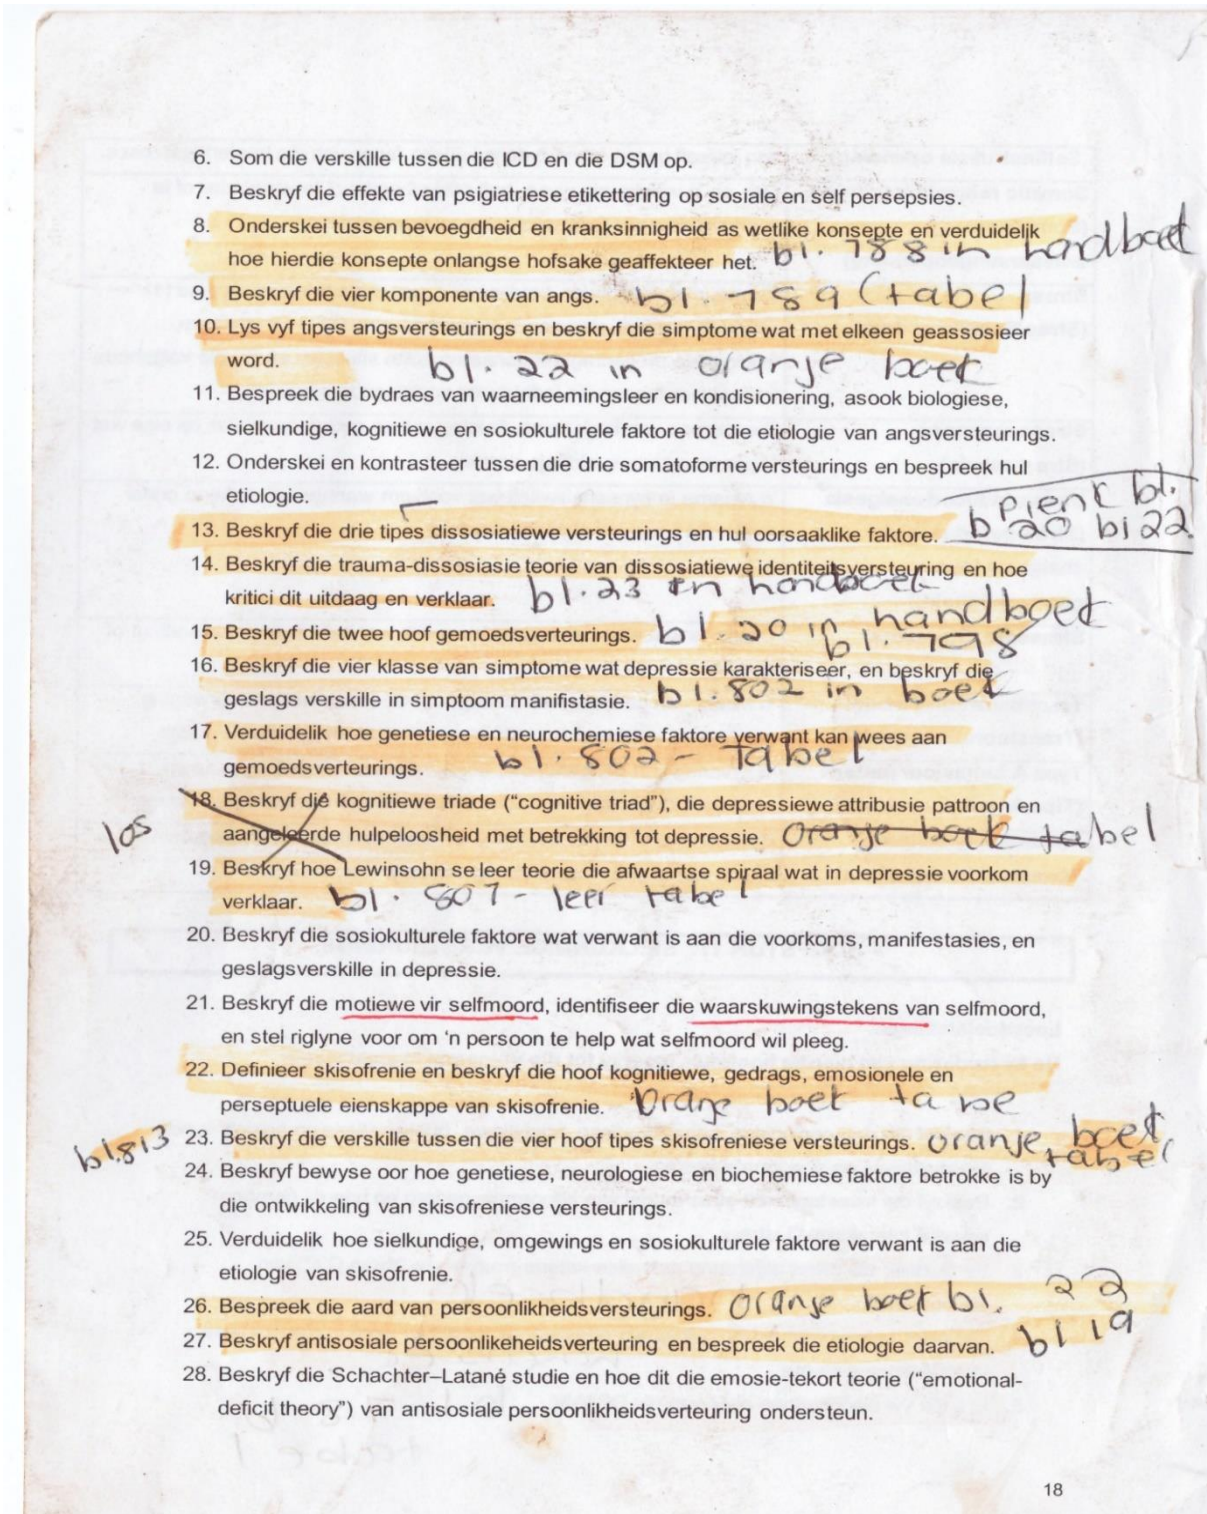 6. Som die verskille tussen die ICD en die DSM op.
7. Beskryf die effekte van psigiatriese etikettering op sosiale en self persepsies.
8. Onderskei tussen bevoegdheid en kranksinnigheid as wetlike konsepte en verduidelik
hoe hierdie konsepte onlangse hofsake geaffekteer het. bl. 788 in handboek
9. Beskryf die vier komponente van angs. bl. 789 (tabel
10. Lys vyf tipes angsversteurings en beskryf die simptome wat met elkeen geassosieer
word. bl. 22 in oranje boek
11. Bespreek die bydraes van waarneemingsleer en kondisionering, asook biologiese,
sielkundige, kognitiewe en sosiokulturele faktore tot die etiologie van angsversteurings.
12. Onderskei en kontrasteer tussen die drie somatoforme versteurings en bespreek hul
etiologie.
pienk bl.
13. Beskryf die drie tipes dissosiatiewe versteurings en hul oorsaaklike faktore. b 20 bl 22
14. Beskryf die trauma-dissosiasie teorie van dissosiatiewe identiteitsversteuring en hoe
kritici dit uitdaag en verklaar. bl. 23 en handboek
15. Beskryf die twee hoof gemoedsverteurings. bl. 20 in handboek
bl. 798
16. Beskryf die vier klasse van simptome wat depressie karakteriseer, en beskryf die
geslags verskille in simptoom manifistasie. bl. 802 in boek
17. Verduidelik hoe genetiese en neurochemiese faktore verwant kan wees aan
gemoedsverteurings. bl. 802 - tabel
18. Beskryf die kognitiewe triade (“cognitive triad”), die depressiewe attribusie pattroon en
los aangeleerde hulpeloosheid met betrekking tot depressie. Oranje boek tabel
19. Beskryf hoe Lewinsohn se leer teorie die afwaartse spiraal wat in depressie voorkom
verklaar. bl. 807 - leer tabel
20. Beskryf die sosiokulturele faktore wat verwant is aan die voorkoms, manifestasies, en
geslagsverskille in depressie.
21. Beskryf die motiewe vir selfmoord, identifiseer die waarskuwingstekens van selfmoord,
en stel riglyne voor om ‘n persoon te help wat selfmoord wil pleeg.
22. Definieer skisofrenie en beskryf die hoof kognitiewe, gedrags, emosionele en
perseptuele eienskappe van skisofrenie. Oranje boek
bl.813 23. Beskryf die verskille tussen die vier hoof tipes skisofreniese versteurings. oranje boek,
tabel
24. Beskryf bewyse oor hoe genetiese, neurologiese en biochemiese faktore betrokke is by
die ontwikkeling van skisofreniese versteurings.
25. Verduidelik hoe sielkundige, omgewings en sosiokulturele faktore verwant is aan die
etiologie van skisofrenie.
26. Bespreek die aard van persoonlikheidsversteurings. Oranje boek bl. 22
27. Beskryf antisosiale persoonlikeheidsverteuring en bespreek die etiologie daarvan. bl 19
28. Beskryf die Schachter–Latané studie en hoe dit die emosie-tekort teorie (“emotional-
deficit theory”) van antisosiale persoonlikheidsverteuring ondersteun.
18